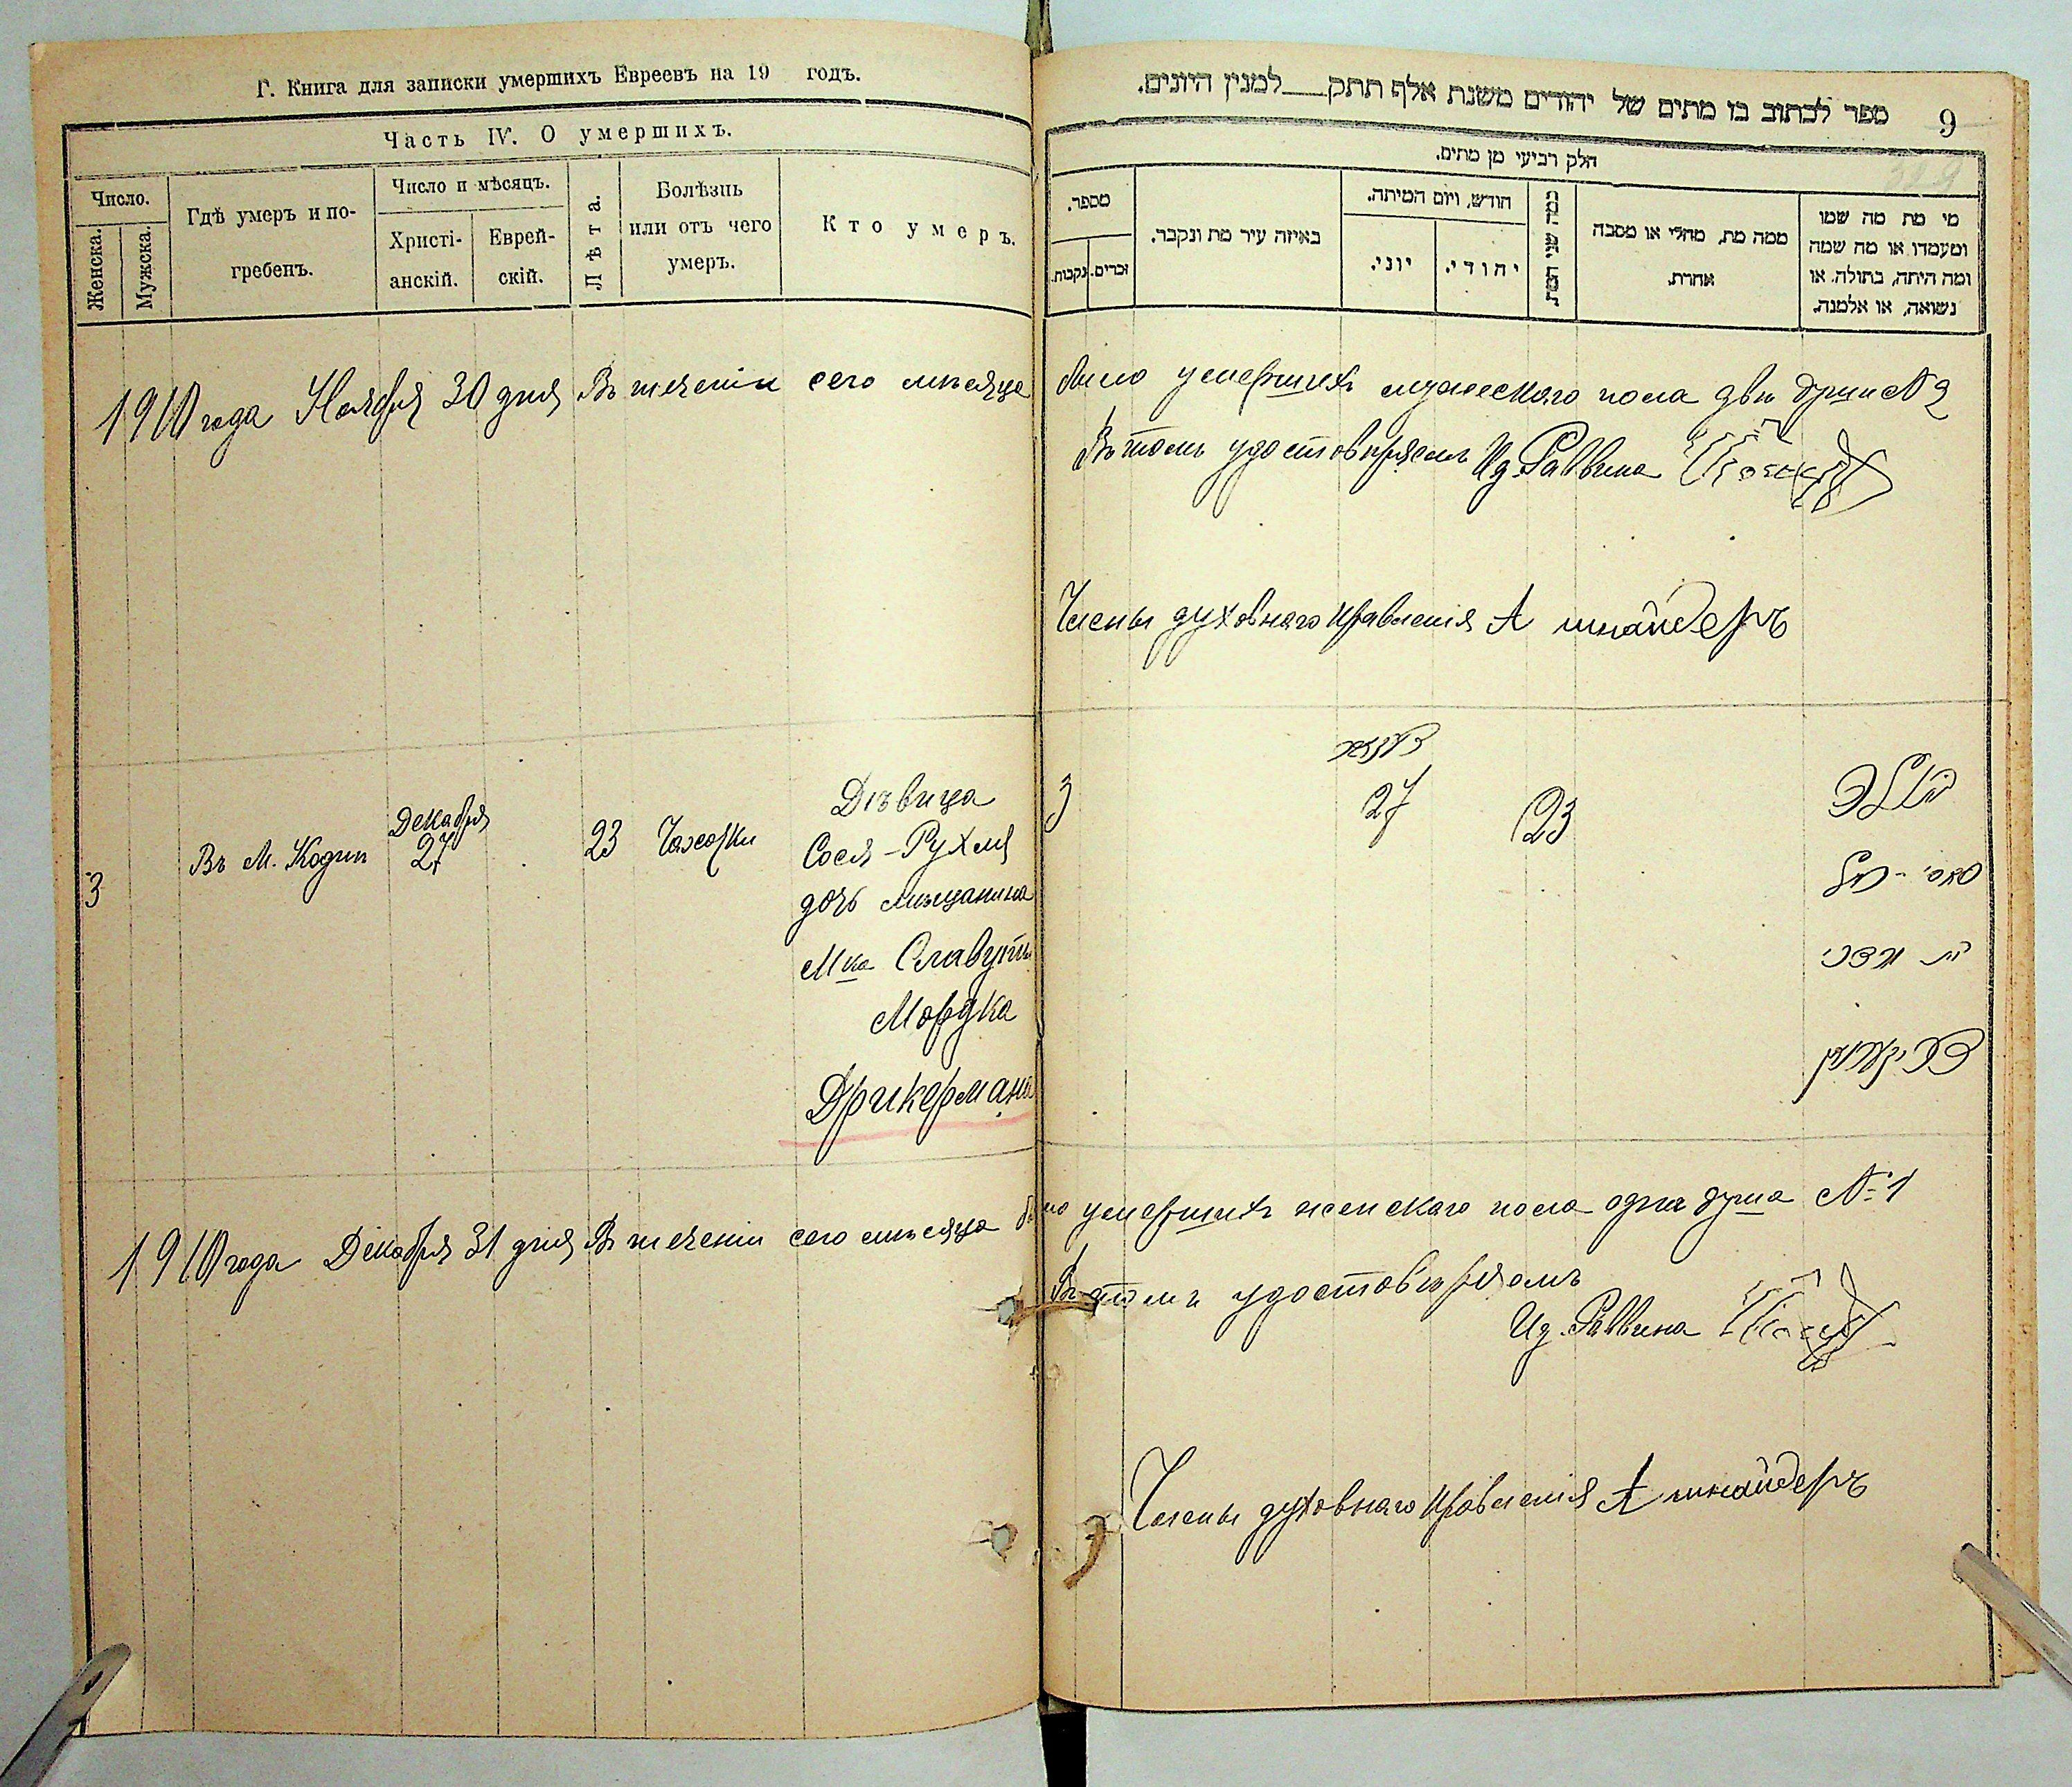 Г. Книга для записки умершихъ Евреевъ на 19 годъ.
Часть IV. О умершихъ.
Число.
Женска.
Мужска.
Гдѣ умеръ и по-
гребенъ.
Число и мѣсяцъ.
Христі-
анскій.
Еврей-
скій.
Лѣта.
Болѣзнь
или отъ чего
умеръ.
Кто умеръ.
ספר לכתוב בו מתים של יהודים משנת אלף תתק___למנין היונים.
9
חלק רביעי מן מתים.
מספר.
נקבות.
זכרים.
באיזה עיר מת ונקבר.
חודש, ויום המיתה.
יוני.
יהודי.
כמה שני המת.
ממה מת, מחלי או מסבה
אחרת.
מי מת מה שמו
ומעמדו או מה שמה
ומה היתה, בתולה. או
נשואה, או אלמנה.
1910 года Ноября 30 дня Въ теченіи сего мѣсяца было умершихъ мужескаго пола двѣ души № 2
Въ томъ удостовѣряемъ Ид. Раввина
Члены духовнаго правленія А шнайдеръ
3
Въ М. Кодни
Декабря
27
23
Чахотки
Дѣвица
Сося-Рухля
дочь мѣщанина
М ка Славуты
Мордка
Дрикерманъ
3
27
23
1910 года Декабря 31 дня Въ теченіи сего мѣсяца было умершихъ женскаго пола одна душа № 1
Въ томъ удостовѣряемъ
Ид. Раввина
Члены духовнаго правленія А шнайдеръ